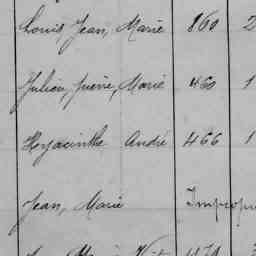 Louis Jean, Marie 860 2
Julien, pierre, Marie 460 1
Hyacinthe André 466 1
Jean, Marie Improp